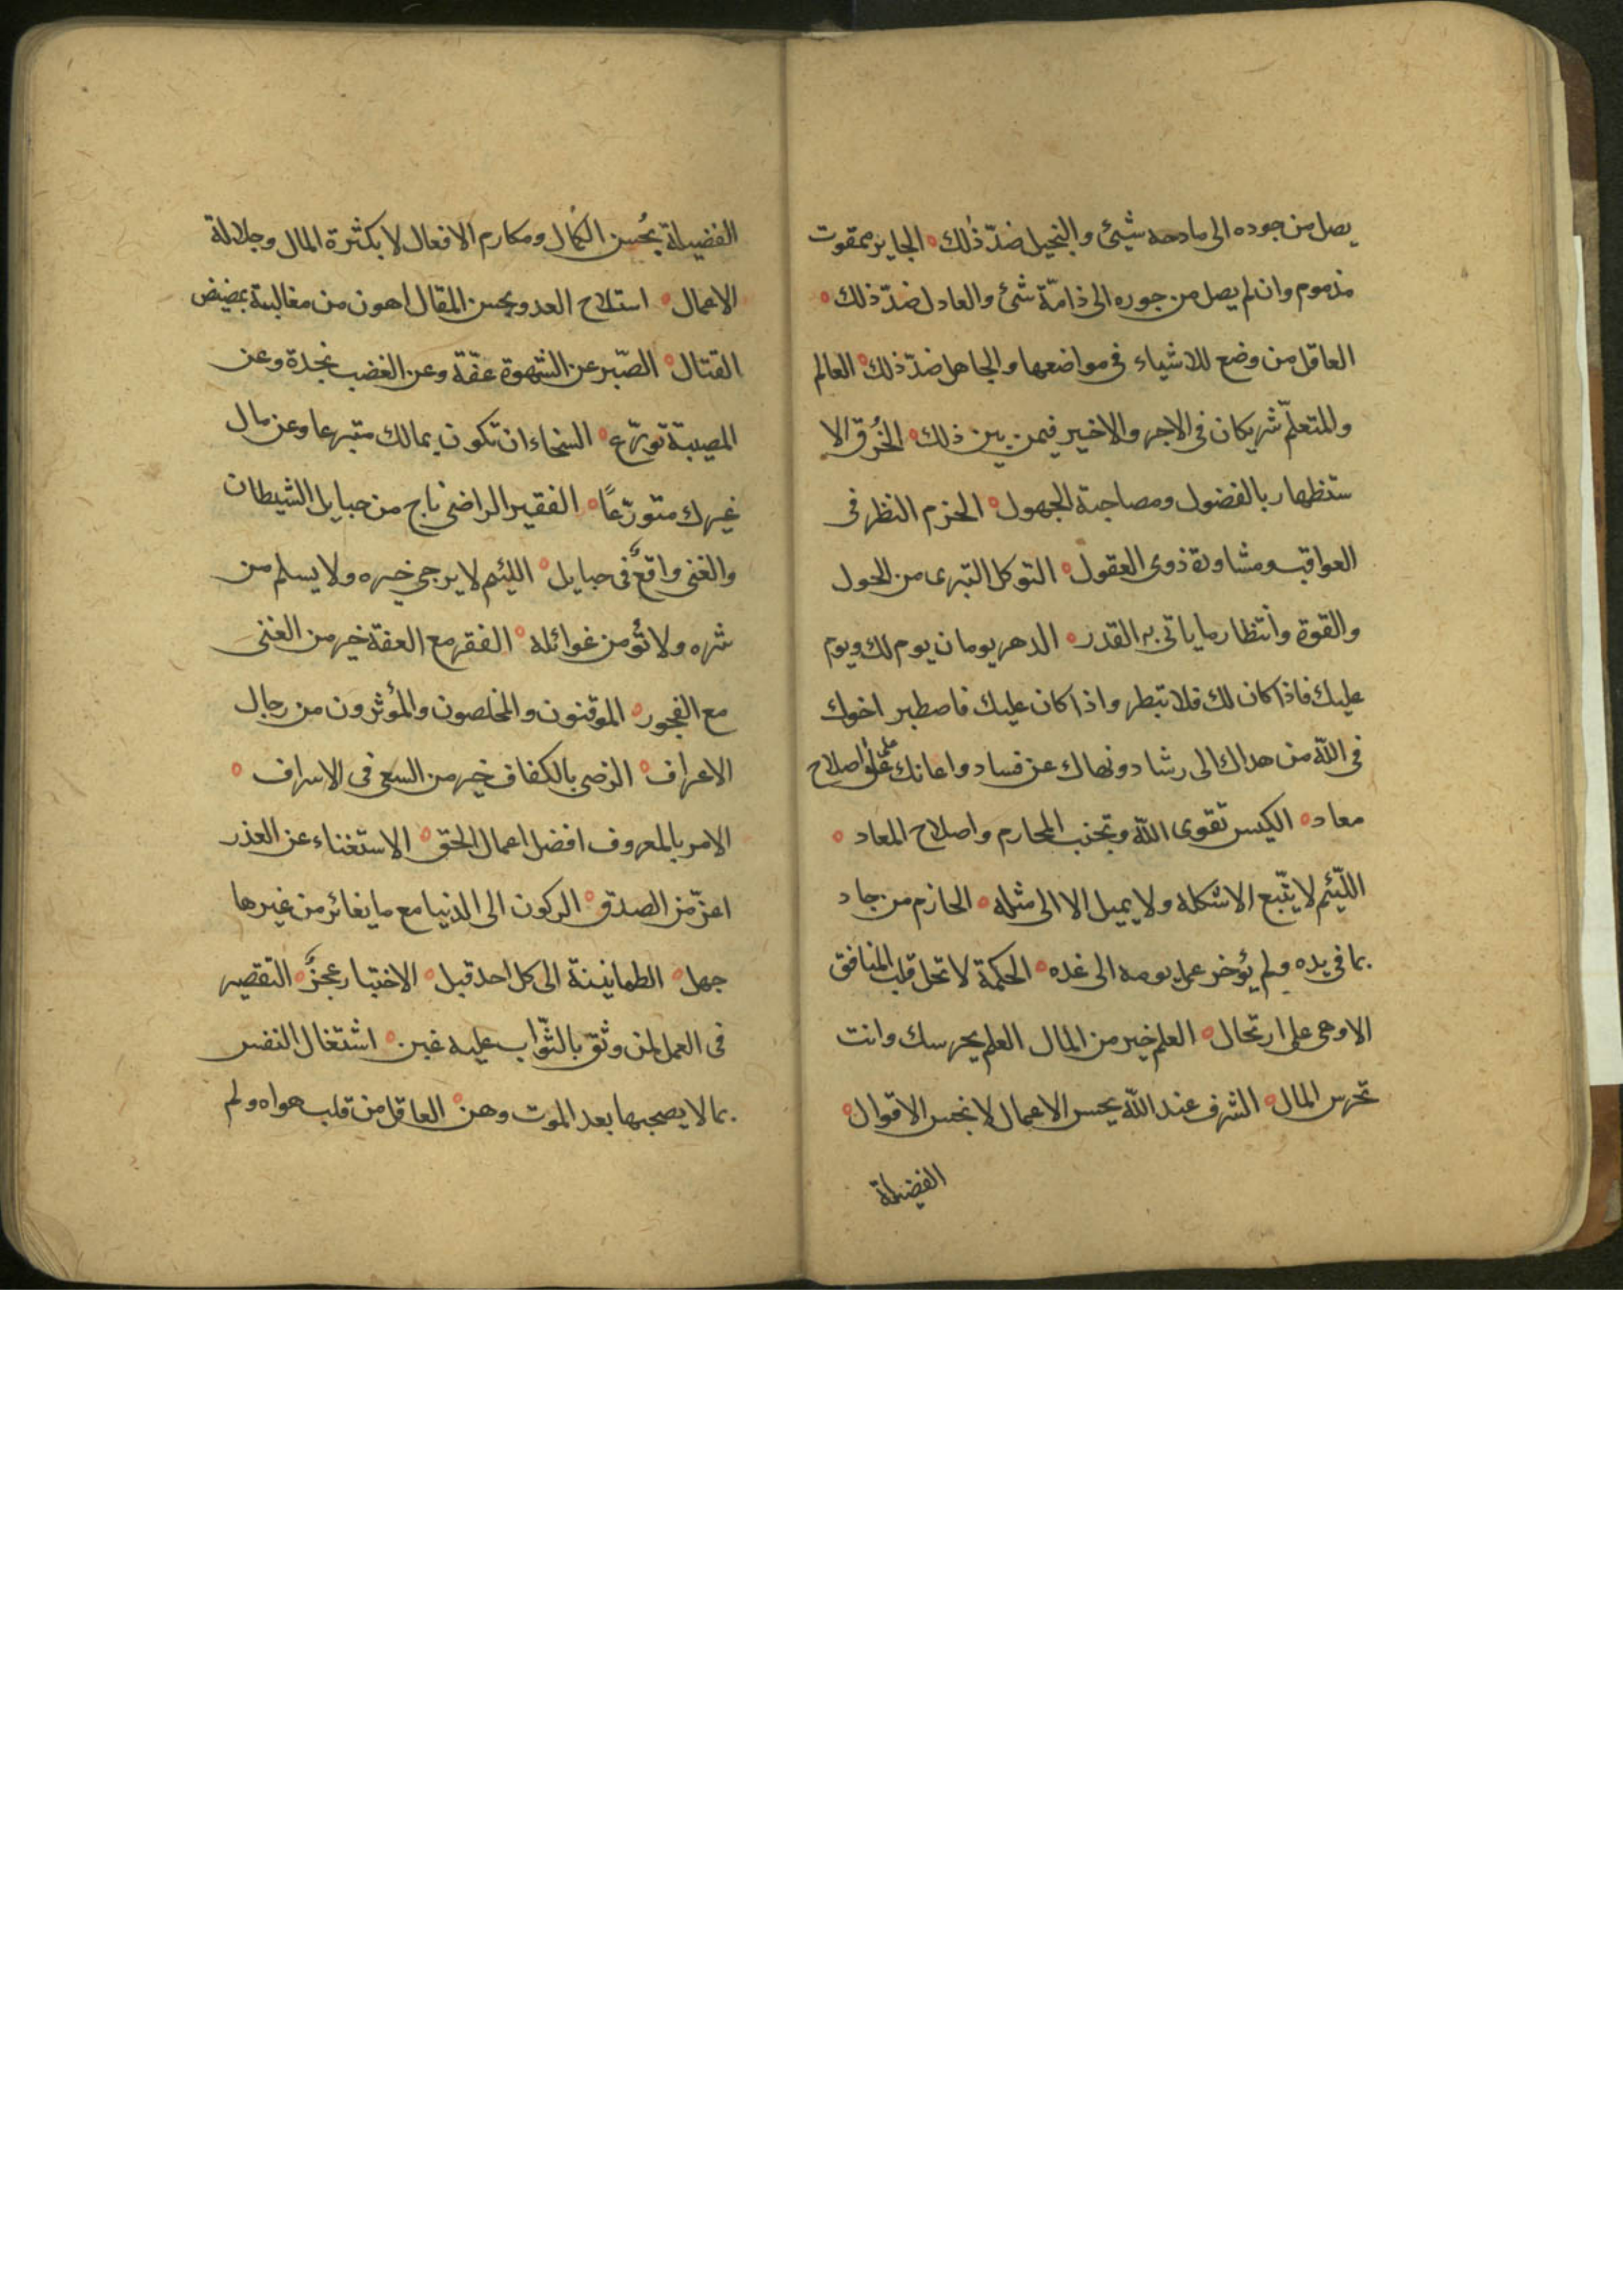 يصل من جوده الى مادحه شيئ والبخيل ضدّ ذلك ۰ الجاير ممقوت
مذموم وان لم يصل من جوره الى ذامّة شئ والعادل ضدّ ذلك ۰
العاقل من وضع للاشياء فى مواضعها والجاهل ضدّ ذلك ۰ العالم
والمتعلّم شريكان فى الاجر والاخير فيمن بين ذلك ۰ الخُرق الا
ستظهار بالفضول ومصاحبة الجهول ۰ الحزم النظر فى
العواقب ومشاورة ذوى العقول ۰ التوكل التبرى من الحول
والقوة وانتظار ما ياتى به القدر ۰ الدهر يومان يوم لك ويوم
عليك فاذا كان لك فلا تبطر واذا كان عليك فاصطبر اخوك
فى اللّه من هداك الى رشاد ونهاك عن فساد واعانك على اصلاح
معاد ۰ الكيس تقوى اللّه وتجنب المحارم واصلاح المعاد ۰
اللّئيم لا يتّبع الا شكله ولا يميل الا الى مثله ۰ الحازم من جاد
بما فى يده ولم يؤخر عمل يومه الى غده ۰ الحكمة لا تحل قلب المنافق
الا وهى على ارتحال ۰ العلم خير من المال العلم يحرسك وانت
تحرس المال ۰ الشرف عند اللّه بحسن الاعمال لا بحسن الاقوال ۰
الفضيلة
الفضيلة بحُسن الكمال ومكارم الافعال لا بكثرة المال وجلالة
الاعمال ۰ استلاح العدو بحسن المقال اهون من مغالبته بمضيض
القتال ۰ الصّبر عن الشهوة عفّة وعن الغضب نجدة وعن
المصيبة تورّع ۰ السخاء ان تكون بمالك متبرعا وعن مال
غيرك متورّعًا ۰ الفقير الراضى ناج من حبايل الشيطان
والغنى واقعٌ فى حبايل ۰ اللئيم لا يرجى خيره ولا يسلم من
شره ولا تؤمن غوائله ۰ الفقر مع العفة خير من الغنى
مع الفجور ۰ الموقنون والمخلصون والمؤثرون من رجال
الاعراف ۰ الرضى بالكفاف خير من السعى فى الاسراف ۰
الامر بالمعروف افضل اعمال الخلق ۰ الاستغناء عن العذر
اعزّ من الصدق ۰ الركون الى الدنيا مع ما يغائر من غيرها
جهل ۰ الطمانينة الى كل احد قبل ۰ الاختبار عجزٌ ۰ التقصير
فى العمل لمن وثق بالثّواب عليه غبن ۰ اشتغال النفس
بما لا يصحبها بعد الموت وهن ۰ العاقل من قلب هواه ولم